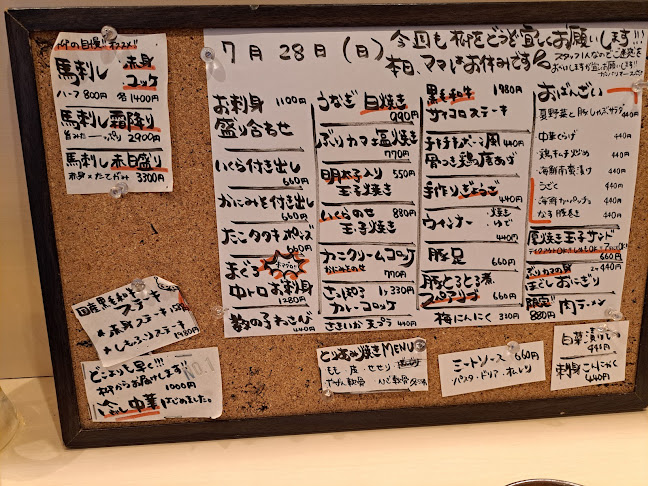 馬刺し 赤身 コッケ
ハーフ 800円 名 1400円
馬刺し 霜降り
2900円
馬刺し 赤白盛り
赤身×たてがみ 3300円
国産黒毛和牛
ステーキ
赤身ステーキ
しもふりステーキ
1980円
どこよりも早く!!
1000円
冷し中華はじめました。
NO.1
7月28日(日)
今回も
宜しくお願いします!!!
本日、ママはお休みです
スタッフ1人なのでご迷惑を
お願いします!!
お刺身 1100円
盛り合わせ
いくら付き出し
660円
かにみそ付き出し
660円
たこタタキポン酢
660円
まぐろ
中トロお刺身
1280円
数の子わさび
440円
うなぎ 白焼き
990円
ぶりカマ塩焼き
770円
明太子入り 550円
玉子焼き
いくらのせ 880円
玉子焼き
カニクリームコロッケ
770円
さっぽろ 1ヶ330円
カレーコロッケ
ささいか天プラ 440円
黒毛和牛 1980円
サイコロステーキ
440円
骨つき鶏唐あげ
手作りぎょうざ
440円
ウインナー ・焼き
・ゆで
440円
豚足 440円
豚とろとろ煮
スペアリブ 660円
梅にんにく 330円
おばんざい
夏野菜と豚しゃぶサラダ
440円
中華くらげ 440円
鶏キムチ炒め 440円
海鮮南蛮漬け 440円
うざく 440円
海鮮カルパッチョ 440円
なす豚巻き 440円
厚焼き玉子サンド
660円
ぶりカマの身 2ヶ440円
ほぐしおにぎり
限定 肉ラーメン
880円
とりもみ焼きMENU
もも・皮・せせり
やげん軟骨
ミートソース 660円
パスタ・ドリア・オムレツ
白菜漬け
440円
刺身こんにゃく
440円